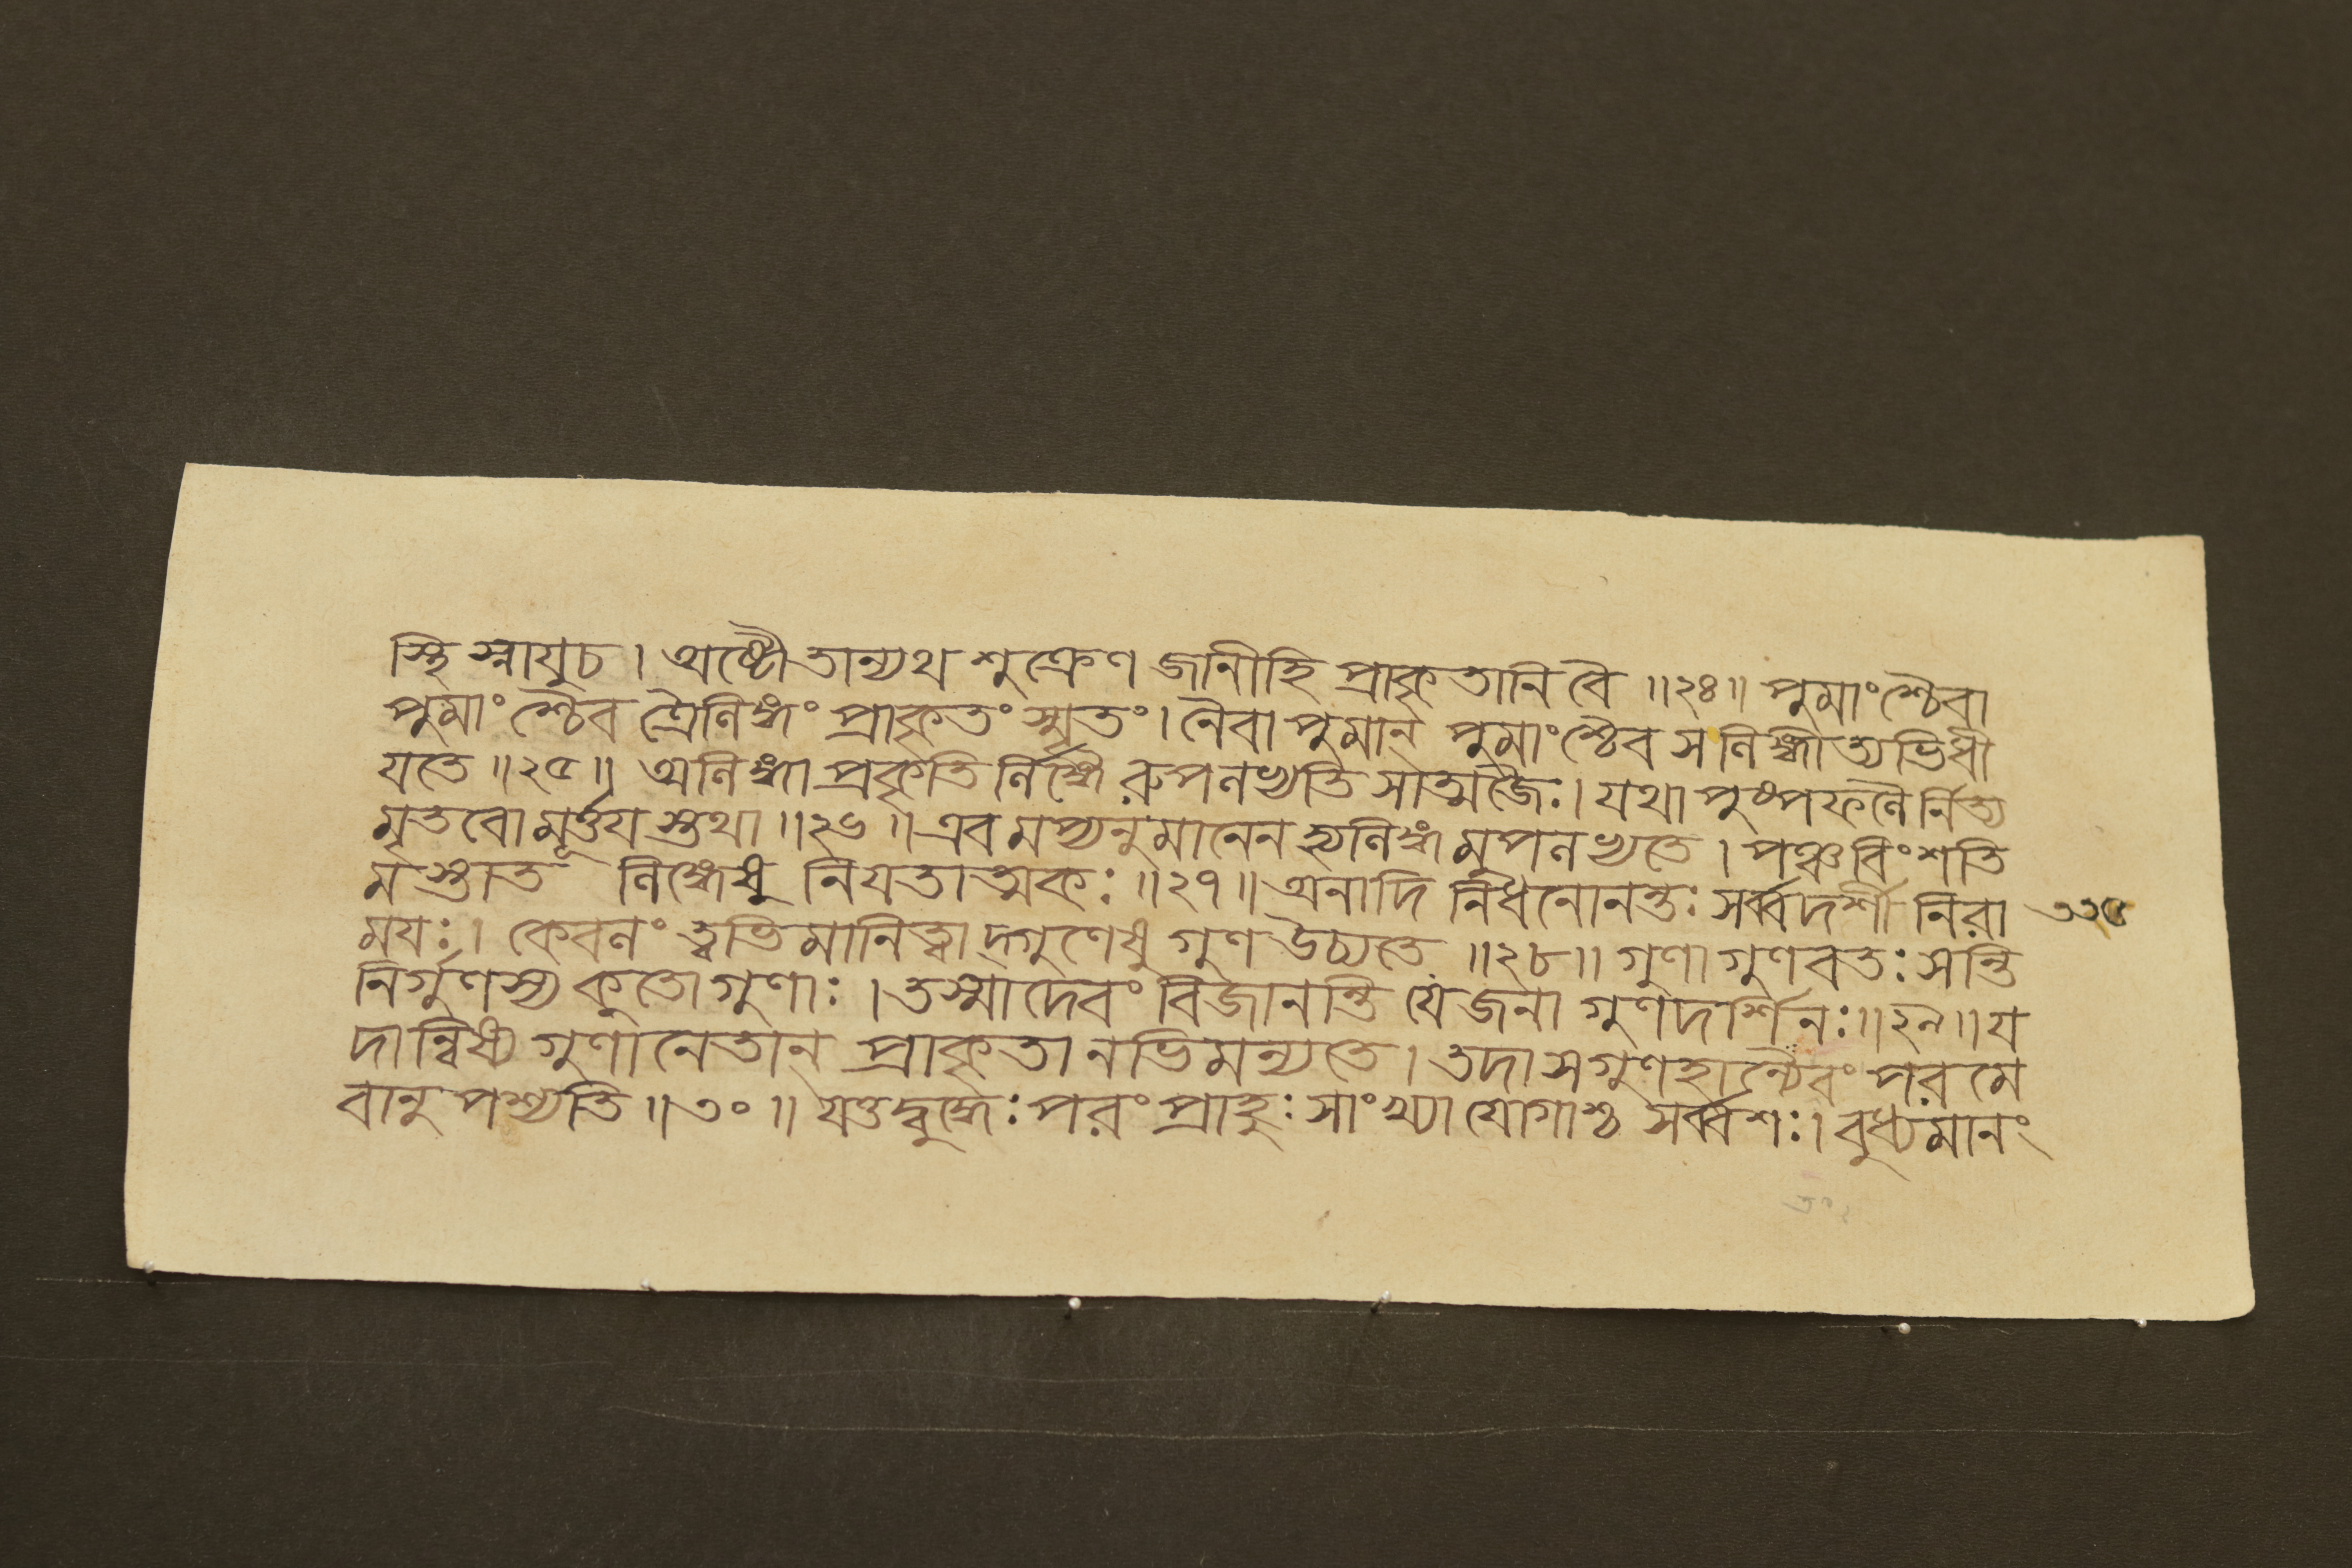 স্থি স্নাযুচ । অষ্টৌতান্যথ শুক্রেণ জানীহি প্রাকৃতানি বৈ ॥২৪॥ পুমাংশ্চৈবা
পুমাংশ্চৈব ত্রৈলিঙ্গ্যং প্রাকৃতং স্মৃতং । নৈবা পুমান্ পুমাংশ্চৈব স লিঙ্গীত্যভিধী
যতে ॥২৫॥ অলিঙ্গা প্রকৃতি র্লিঙ্গৈ রুপলভ্যতি সাত্মজৈঃ । যথা পুষ্পফলৈ র্নিত্য
মৃতবো মূর্ত্তয স্তথা ॥২৬॥ এবমপ্যনুমানেন হ্যলিঙ্গমুপলভ্যতে । পঞ্চবিংশতি
মস্তাত লিঙ্গেষু নিযতাত্মকঃ ॥২৭॥ অনাদি নিধনোনন্তঃ সর্ব্বদর্শী নিরা
মযঃ । কেবলং ত্বভিমানিত্বাদ্গুণেষু গুণ উচ্যতে ॥২৮॥ গুণা গুণবতঃ সন্তি
নির্গুণস্য কুতো গুণাঃ । তস্মাদেবং বিজানন্তি যে জনা গুণদর্শিনঃ ॥২৯॥ য
দান্বিধ্য গুণানেতান্ প্রাকৃতানভিমন্যতে । তদা স গুণহান্যৈবং পরমে
বানুপশ্যতি ॥৩০॥ যত্তদ্বুদ্ধেঃ পরং প্রাহুঃ সাংখ্যা যোগাশ্চ সর্ব্বশঃ । বুধ্যমানং
৩৩৫